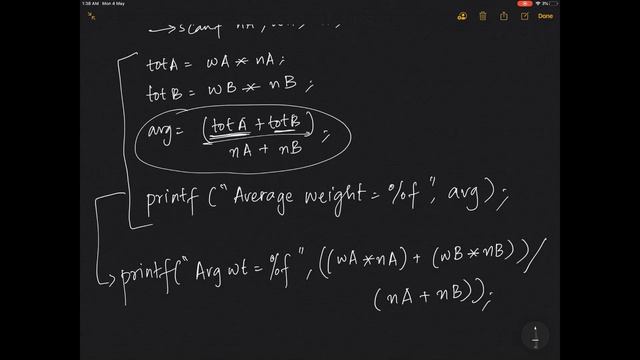 1:38 AM Mon 4 May
3%
Done
→ scanf
totA = wA * nA ;
totB = wB * nB ;
avg = (totA + totB) ;
nA + nB
printf ("Average weight = %f", avg) ;
printf("Avg wt = %f", ((wA * nA) + (wB * nB)) /
(nA + nB)) ;